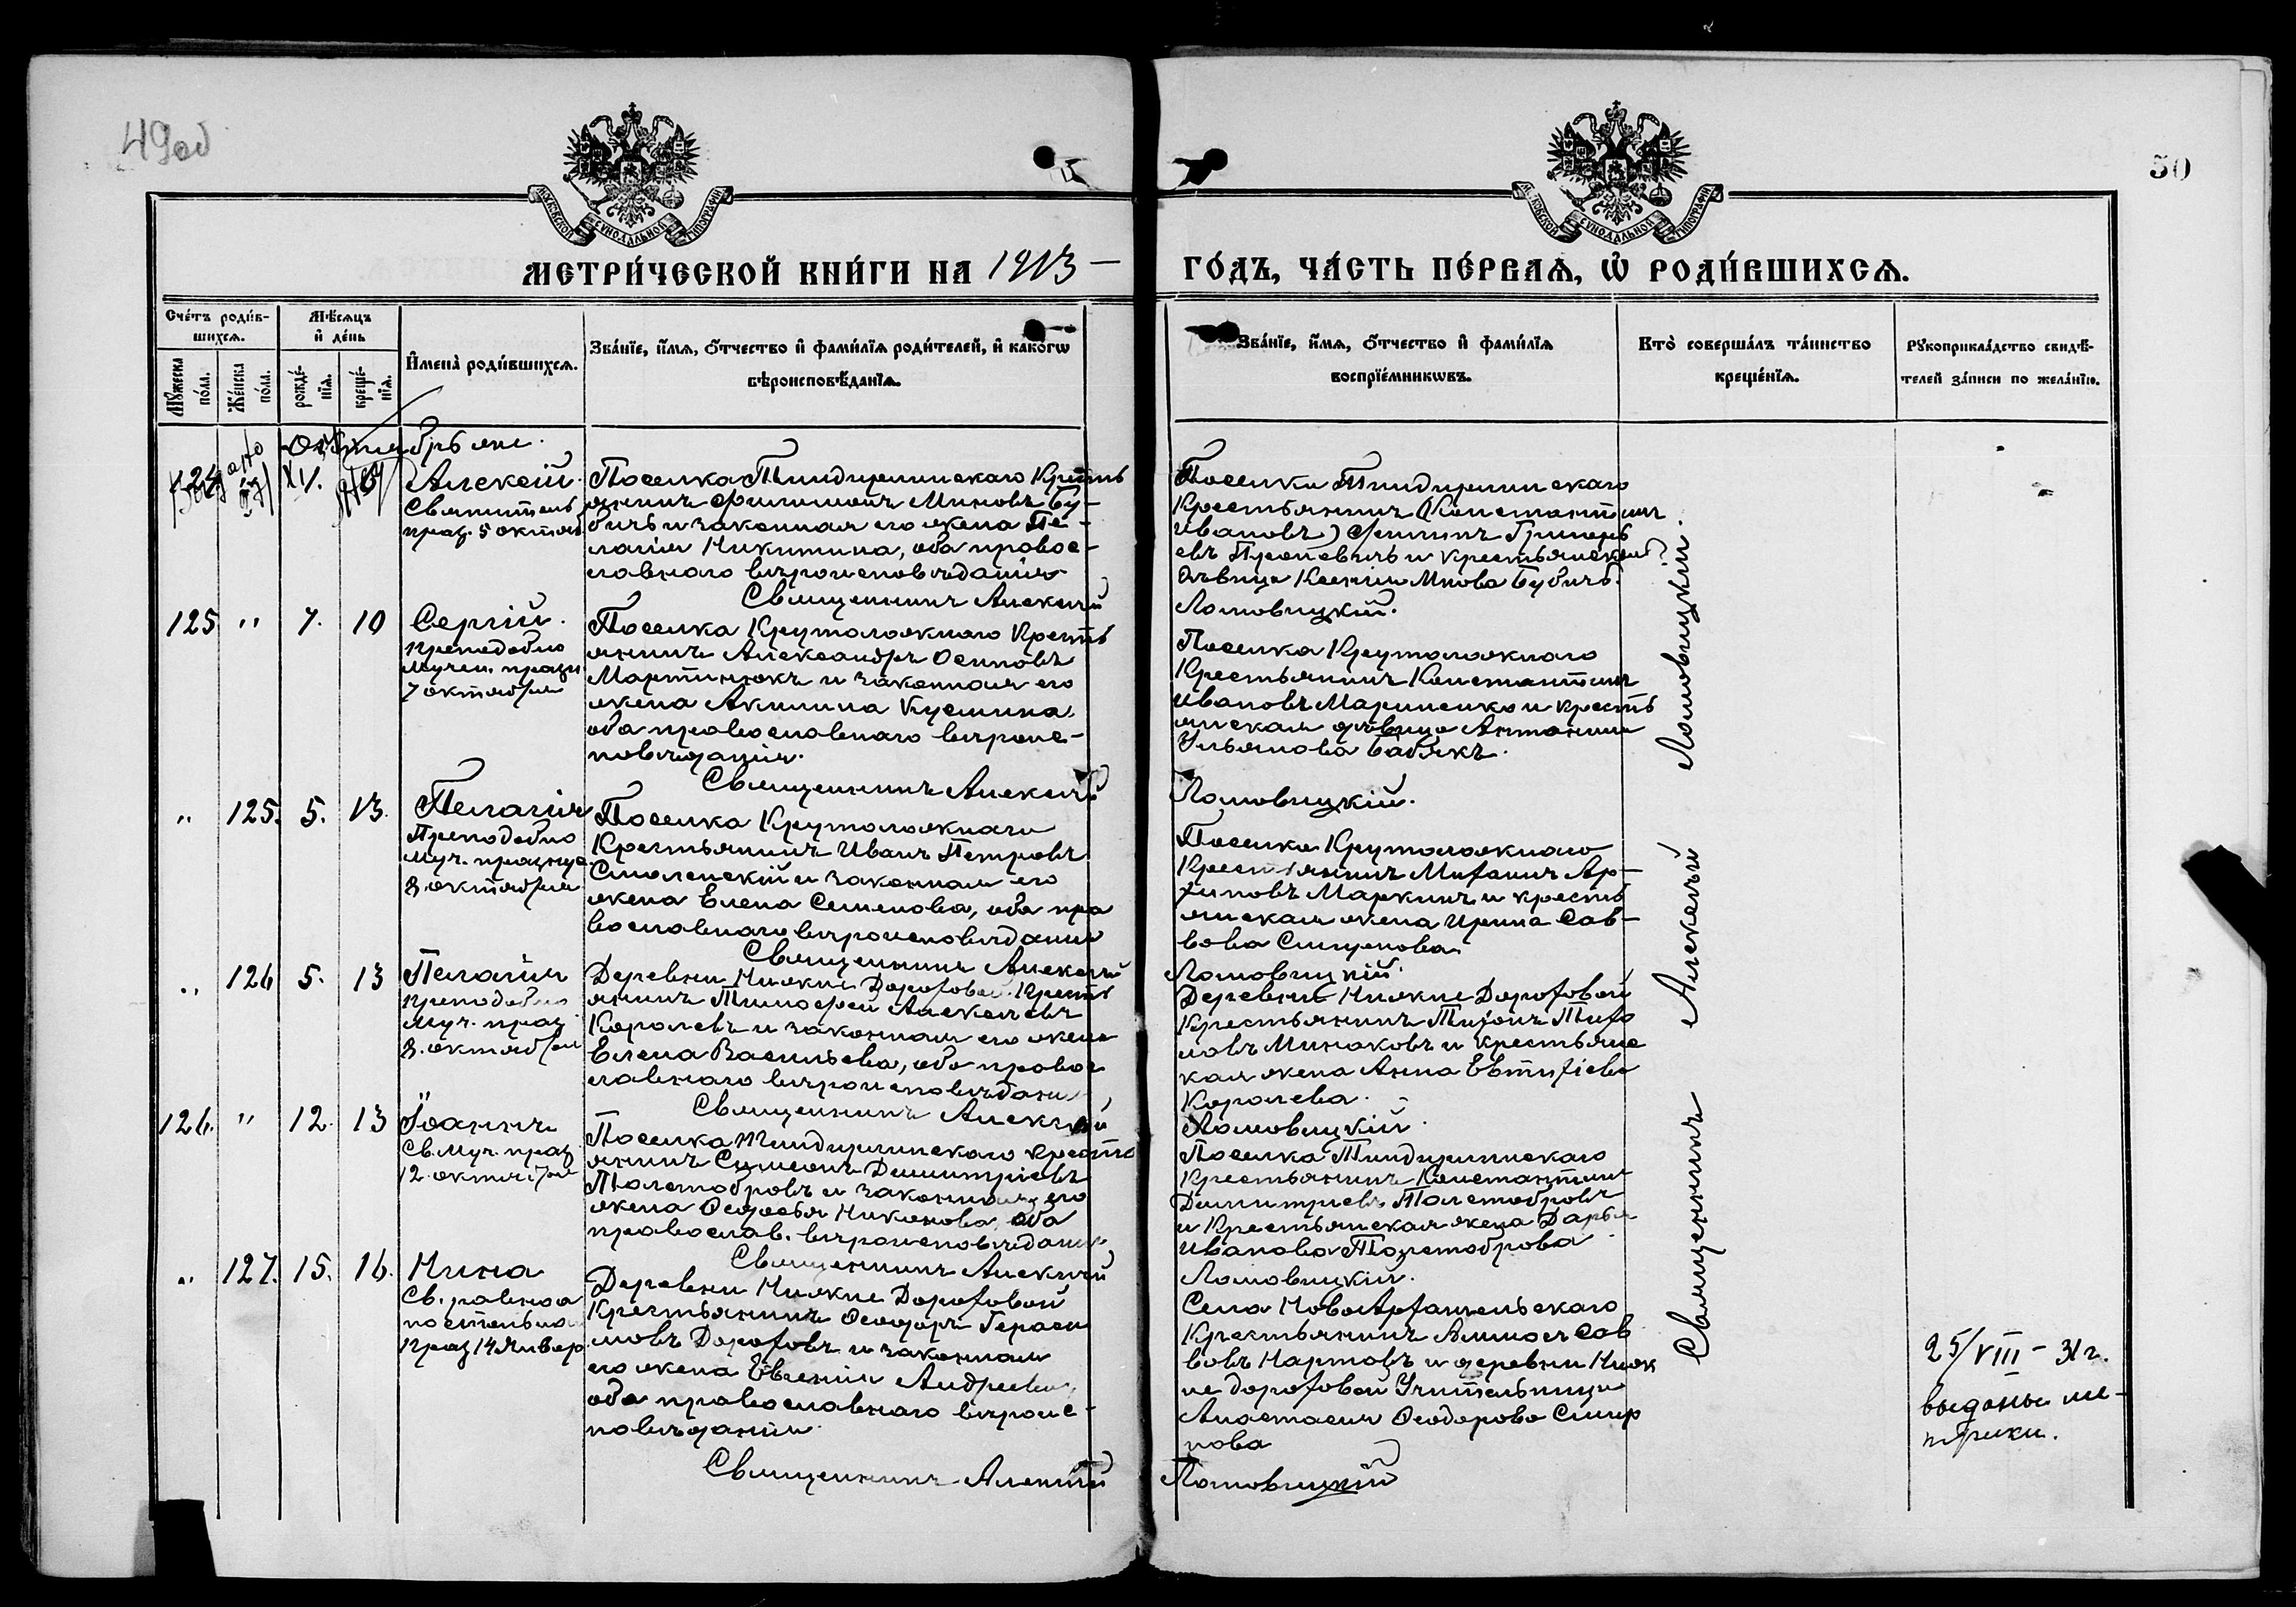 49об
50
МОСКОВСКОЙ СѴНОДАЛЬНОЙ ТИПОГРАФІИ
МЕТРИ́ЧЕСКОЙ КНИ́ГИ НА 1913
ГО́ДЪ, ЧА́СТЬ ПЕ́РВАЯ, Ѡ РОДИ́ВШИХСЯ.
Сче́тъ роди́в-
шихся.
Му́жеска по́ла.
Же́нска по́ла.
Мѣ́сяцъ
и҆ де́нь
рожде́-
нїя.
креще́-
нїя.
И҆мена̀ роди́вшихся.
Зва́нїе, и҆́мя, ѻ҆́тчество и҆ фами́лїя роди́телей, и҆ како́гѡ
вѣроисповѣ́данїя.
Зва́нїе, и҆́мя, ѻ҆́тчество и҆ фами́лїя
воспрїе́мникѡвъ.
Кто̀ соверша́лъ та́инство
креще́нїя.
Рꙋкоприкла́дство свидѣ́-
телей за́писи по жела́нїю.
Октябрь
124
Алексій
Святитель
праз. 5 октяб
Поселка Тиндерлинскаго Кресть
янинъ Филимонъ Миновъ Бу-
бичъ и законная его жена Пе-
лагія Никитина, оба правос-
лавнаго вѣроисповѣданія
Священникъ Алексѣй
Поселка Тиндерлинскаго
Крестьянинъ (Константинъ
Ивановъ) Филипъ Григорь
евъ и крестьянская
дѣвица Ксенія Минова Бубичъ.
Ломовицкій.
125 " 7. 10 Сергій.
преподобно
мучен. празн.
7 октября
Поселка Крутоложнаго Кресть
янинъ Александръ Осиповъ
Мартинюкъ и законная его
жена Акилина Кузмина,
оба православнаго вѣроис-
повѣданія.
Священникъ Алексѣй
Поселка Крутоложнаго
Крестьянинъ Константинъ
Ивановъ Мариненко и кресть
янская дѣвица Антонина
Ульянова Бабякъ.
Ломовицкій.
" 125. 5. 13. Пелагія
Преподобно
муч. празнуе.
8 октября
Поселка Крутоложнаго
Крестьянинъ Иванъ Петровъ
Смоленскій и законная его
жена Елена Семенова, оба пра
вославнаго вѣроисповѣданія
Священникъ Алексѣй
Поселка Крутоложнаго
Крестьянинъ Михаилъ Ар-
хиповъ Маркинъ и кресть
янская жена Ирина Сав-
вова
Ломовицкій.
" 126 5. 13 Пелагія
преподобно
муч. праз.
8. октября
Деревни Нижне Дороховой Кресть
янинъ Тимофей Алексѣевъ
Королевъ и законная его жена
Елена Васильева, оба правос
лавнаго вѣроисповѣданія
Священникъ Алексѣй
Деревни Нижне Дороховой
Крестьянинъ Тихонъ Тихо
новъ Минаковъ и крестьянс
кая жена Анна Евтихіева
Королева.
Ломовицкій.
126. " 12. 13 Іоаннъ
Св. муч. праз
12 октября
Поселка Тиндерлинскаго кресть
янинъ Симеонъ Димитріевъ
и законная его
жена Ѳеодосья Никонова, оба
православ. вѣроисповѣданія
Священникъ Алексѣй
Поселка Тиндерлинскаго
Крестьянинъ Константинъ
Димитріевъ
и Крестьянская жена Дарья
Иванова
Ломовицкій.
" 127. 15. 16. Нина
Св. равноа
постольная
праз 14 Январ.
Деревни Нижне Дороховой
Крестьянинъ Ѳеодоръ Гераси
мовъ Дороховъ и законная
его жена Евгенія Андреева,
оба православнаго вѣроис-
повѣданія.
Священникъ Алексѣй
Села Ново Архангельскаго
Крестьянинъ Амносъ Сав
вовъ Нартовъ и деревни Ниж
не Дороховой Учительница
Анастасія Ѳеодорова Смир
нова
Ломовицкій
Священникъ Алексѣй Ломовицкій.
25/VIII - 31 г.
выданы ме-
трики.